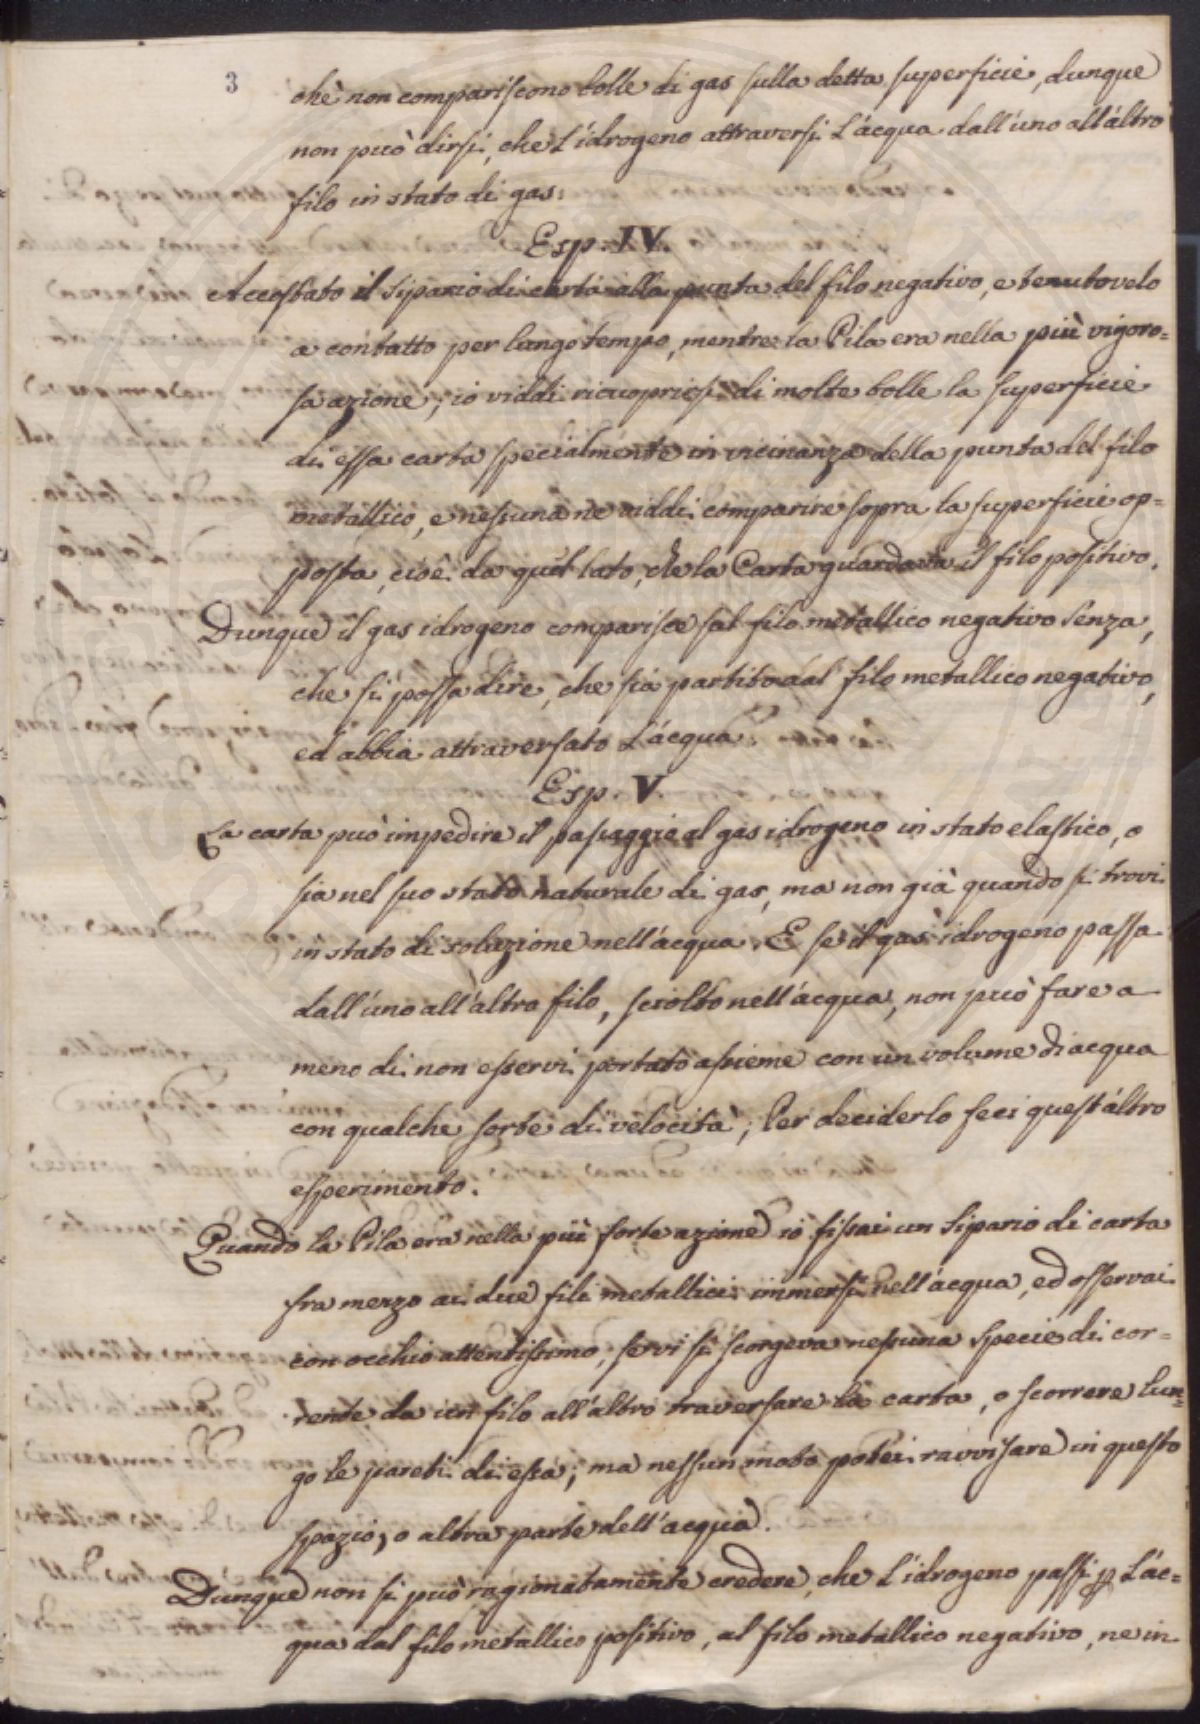 3
chè non compariscono bolle di gas sulla detta superficie, dunque
non può dirsi, che l'idrogeno attraversi l'acqua dall'uno all'altro
filo in stato di gas.
Esp. IV.
Accostato il sipario di carta alla punta del filo negativo, e tenutovelo
a contatto per lungo tempo, mentre la Pila era nella più vigoro=
sa azione, io viddi ricuoprirsi di molte bolle la superficie
di essa carta specialmente in vicinanza della punta del filo
metallico, e nessuna ne viddi comparire sopra la superficie op=
posta, cioè da quel lato, che la Carta guardava il filo positivo.
Dunque il gas idrogeno comparisce sal filo metallico negativo senza,
che si possa dire, che sia partito dal filo metallico negativo,
ed abbia attraversato l'acqua.
Esp. V
La carta può impedire il passaggio al gas idrogeno in stato elastico, o
sia nel suo stato naturale di gas, ma non già quando si trovi
in stato di soluzione nell'acqua. E se il gas idrogeno passa
dall'uno all'altro filo, sciolto nell'acqua, non può fare a
meno di non esservi portato assieme con un volume di acqua
con qualche sorte di velocità; Per deciderlo feci quest'altro
esperimento.
Quando la Pila era nella più forte azione io fissai un sipario di carta
fra mezzo ai due fili metallici immersi nell'acqua, ed osservai
con occhio attentissimo, se vi si scorgeva nessuna specie di cor=
rente da un filo all'altro traversare la carta, o scorrere lun=
go le pareti di essa; ma nessun moto potei ravvisare in questo
spazio, o altra parte dell'acqua.
Dunque non si può ragionatamente credere, che l'idrogeno passi p l'ac=
qua dal filo metallico positivo, al filo metallico negativo, ne in